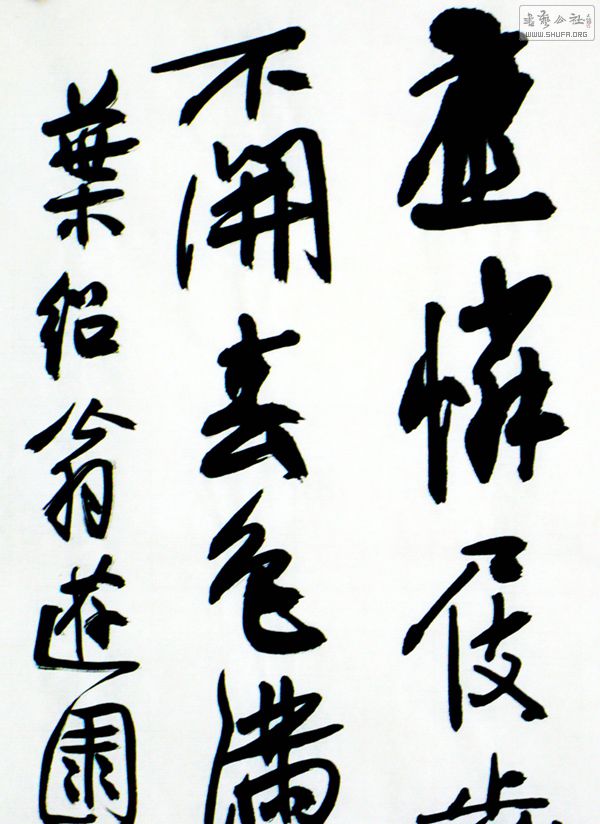 應憐屐齒
不開春色滿
葉紹翁遊園
書藝公社
WWW.SHUFA.ORG